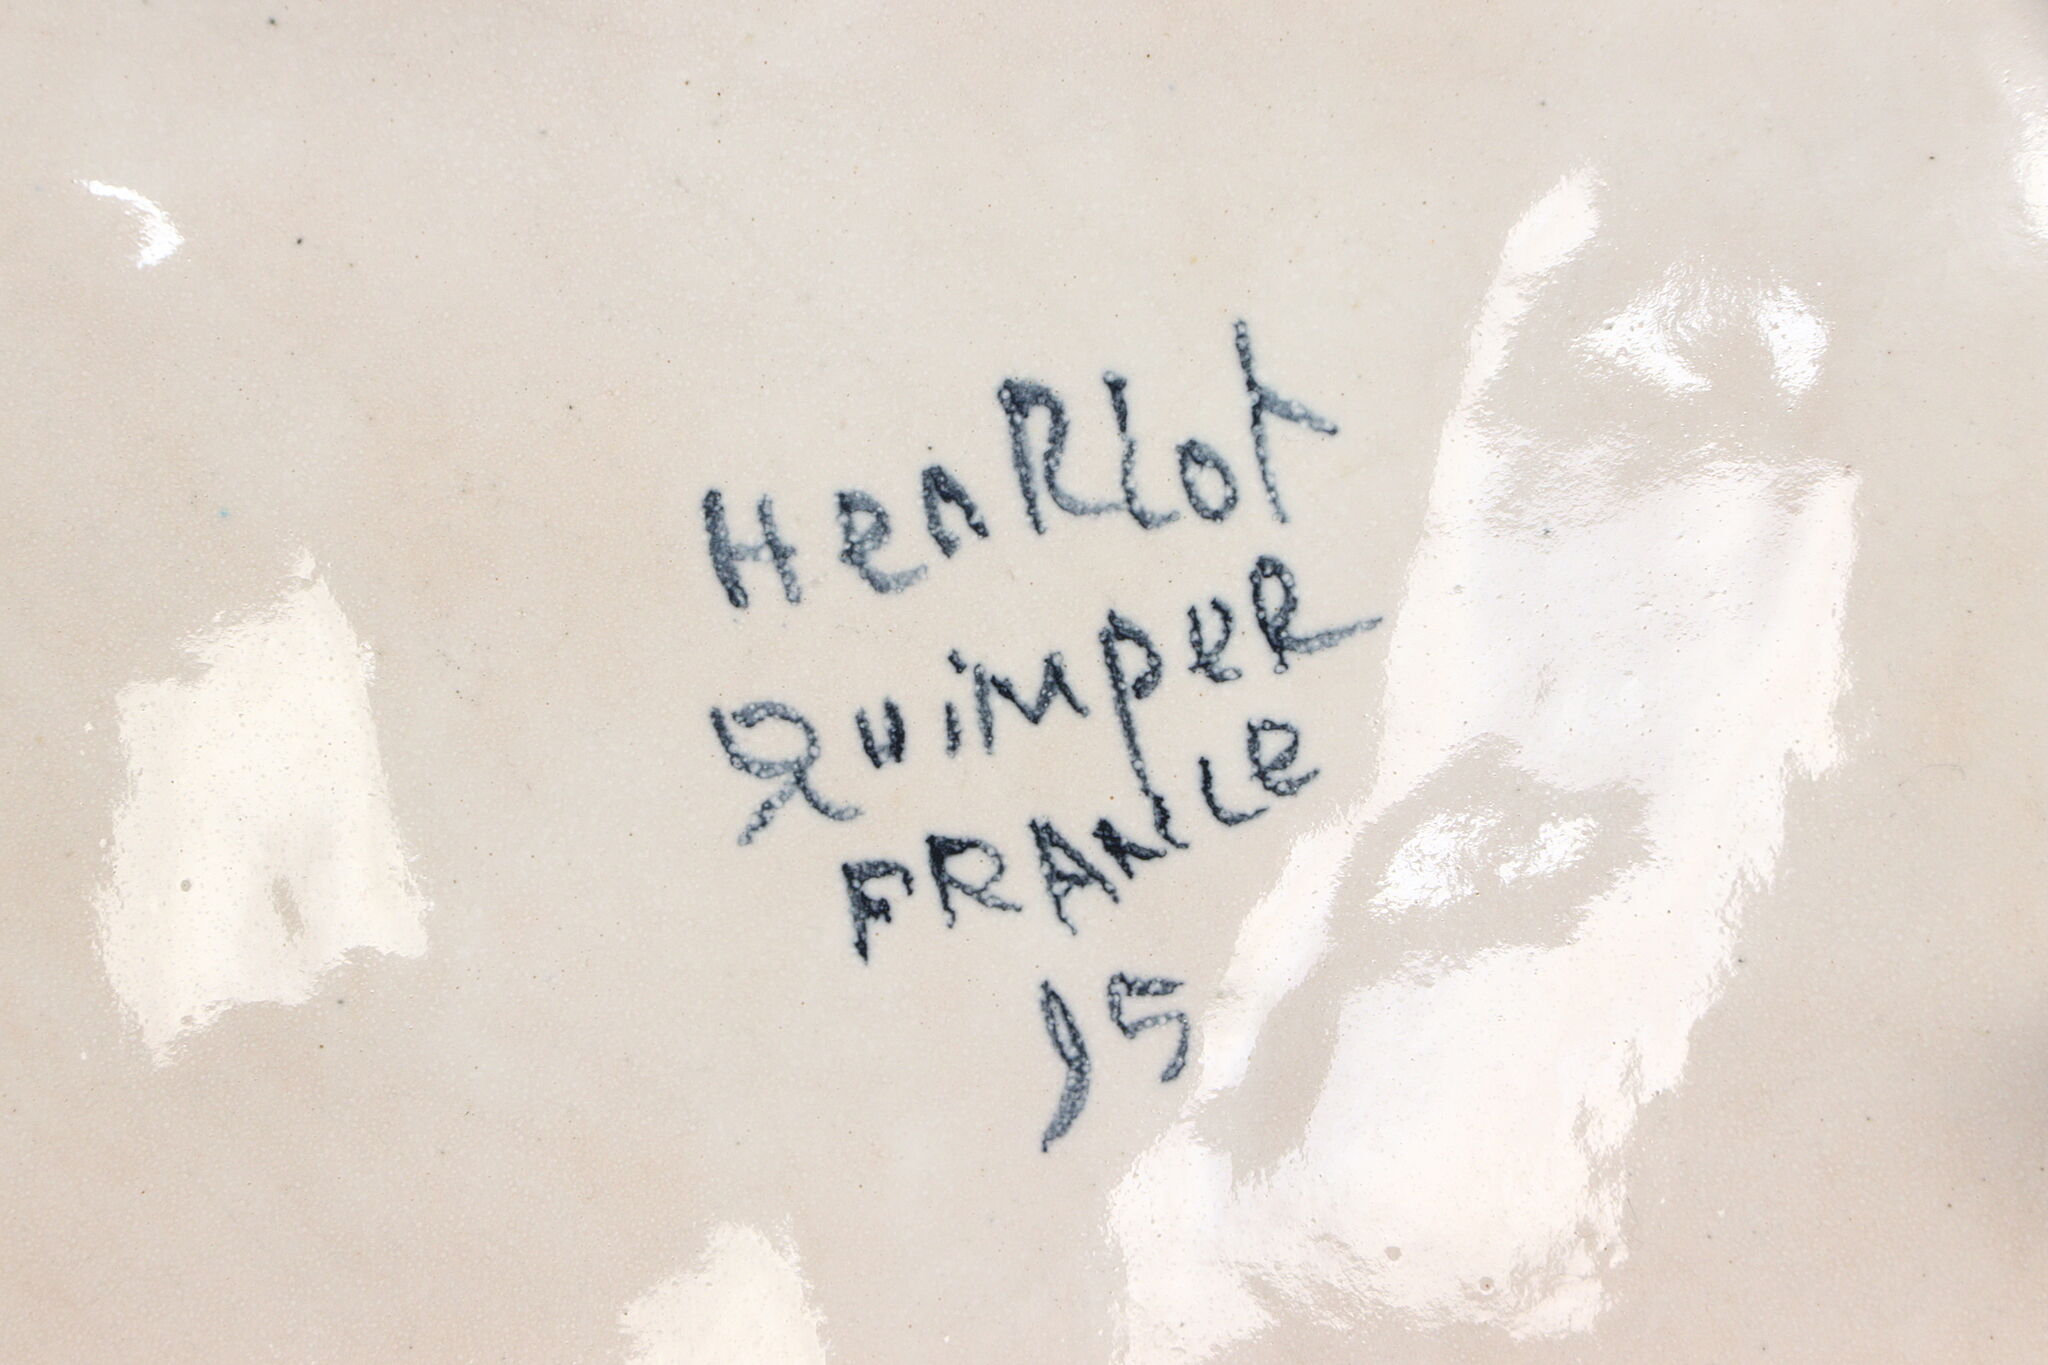 HenRiot
QuimpeR
FRANCe
15